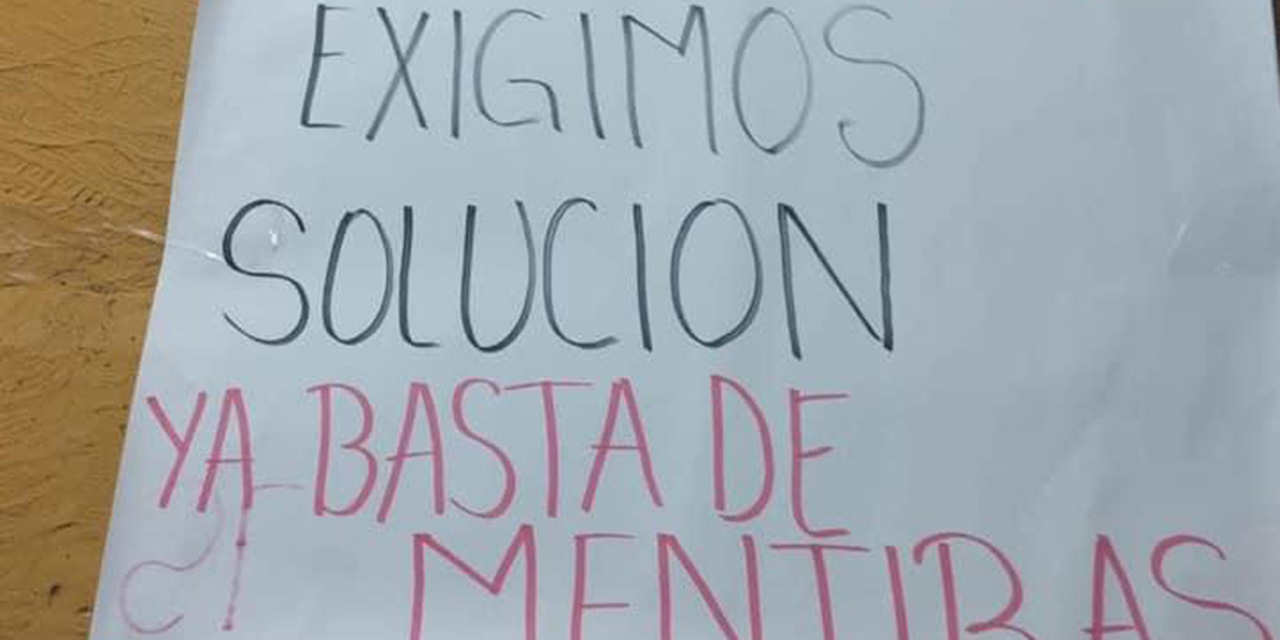 EXIGIMOS
SOLUCION
YA BASTA DE
MENTIRAS